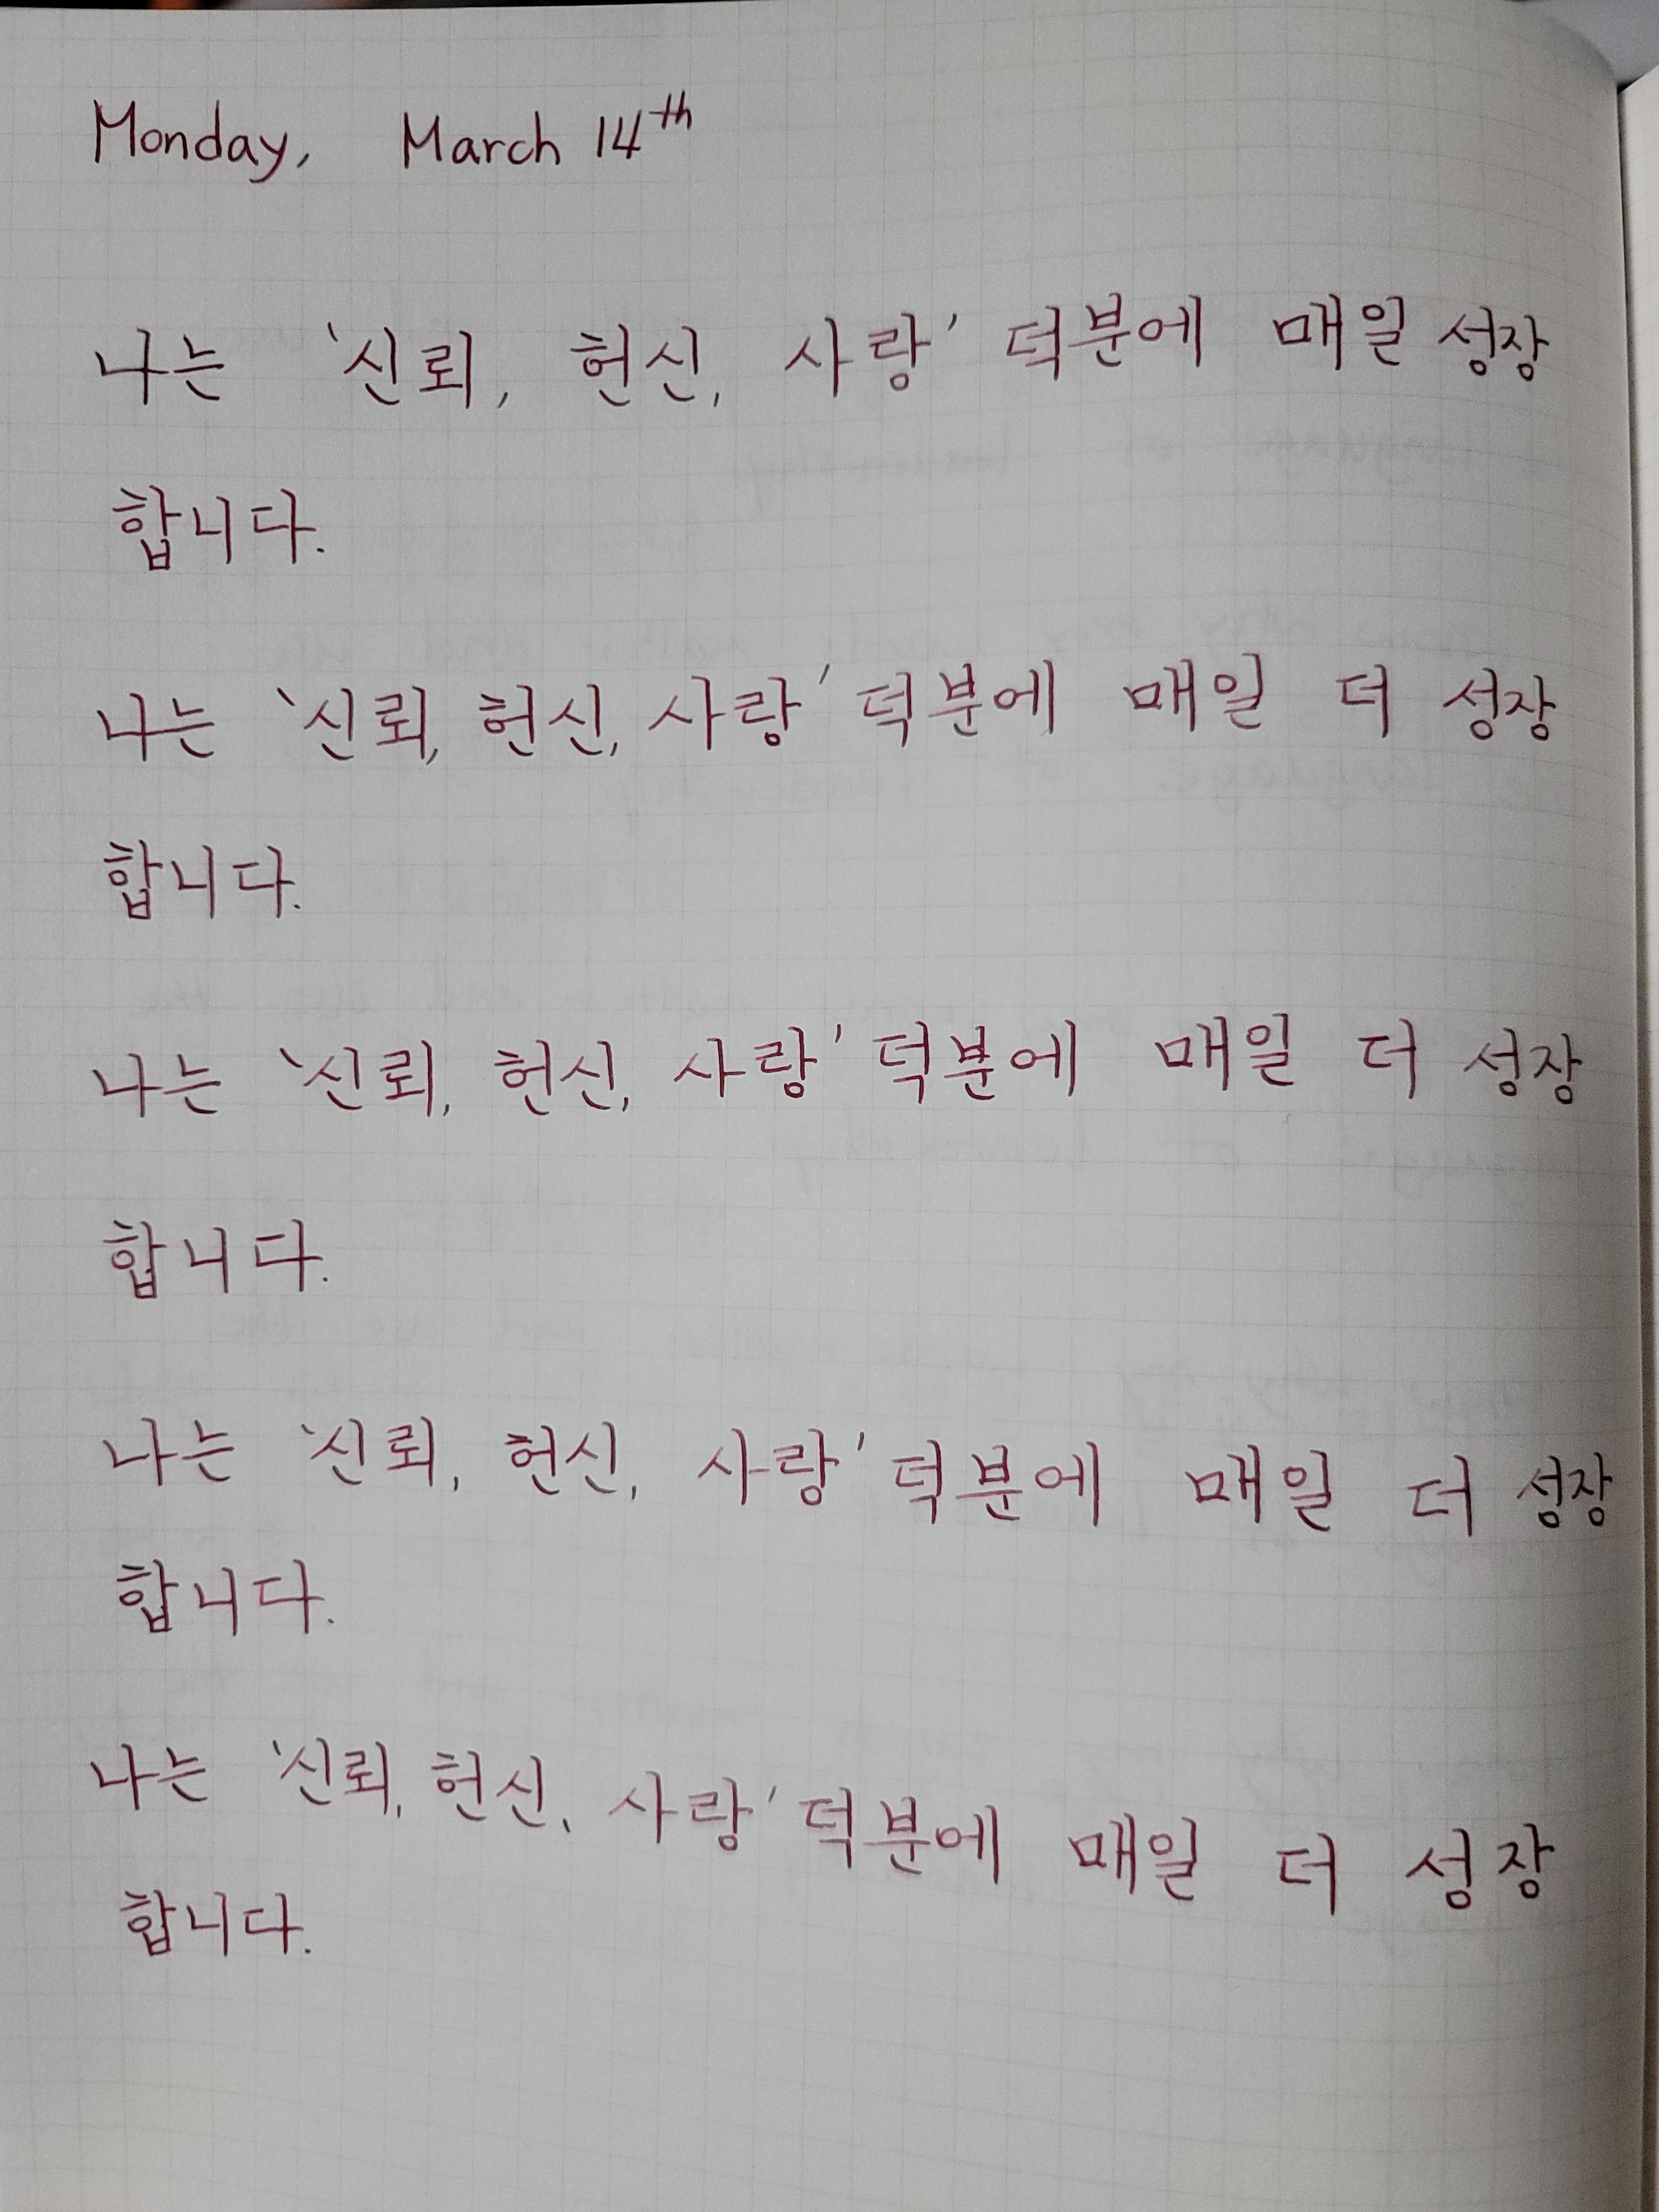 Monday, March 14th
나는 '신뢰, 헌신, 사랑' 덕분에 매일 성장
합니다.
나는 '신뢰, 헌신, 사랑' 덕분에 매일 더 성장
합니다.
나는 '신뢰, 헌신, 사랑' 덕분에 매일 더 성장
합니다.
나는 '신뢰, 헌신, 사랑' 덕분에 매일 더 성장
합니다.
나는 '신뢰, 헌신, 사랑' 덕분에 매일 더 성장
합니다.